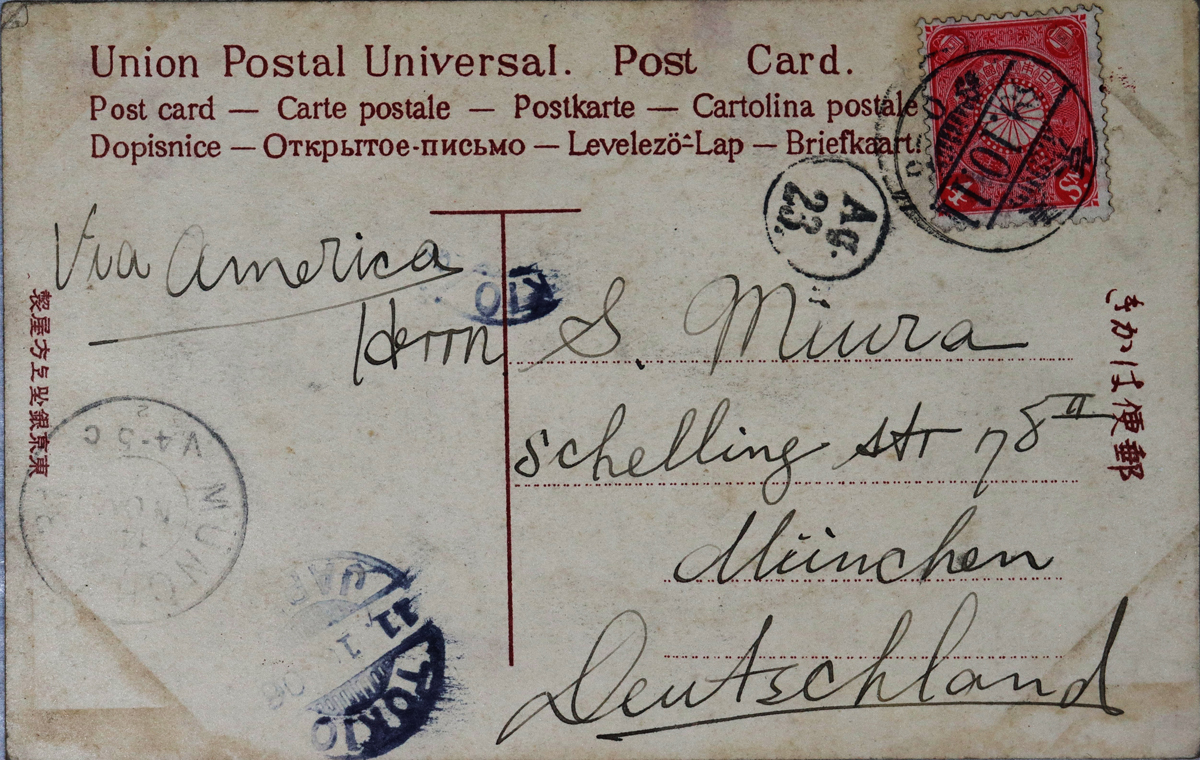 Union Postal Universal. Post Card.
Post card — Carte postale — Postkarte — Cartolina postale
Dopisnice — Открытое-письмо — Levelező-Lap — Briefkaart.
Ag.
23.
Via America
Herrn S. Miura
Schelling str 78 II
München
Deutschland
きかは便郵
製屋方上京銀座東
V 4-5 C
2
11. 1
TOKIO